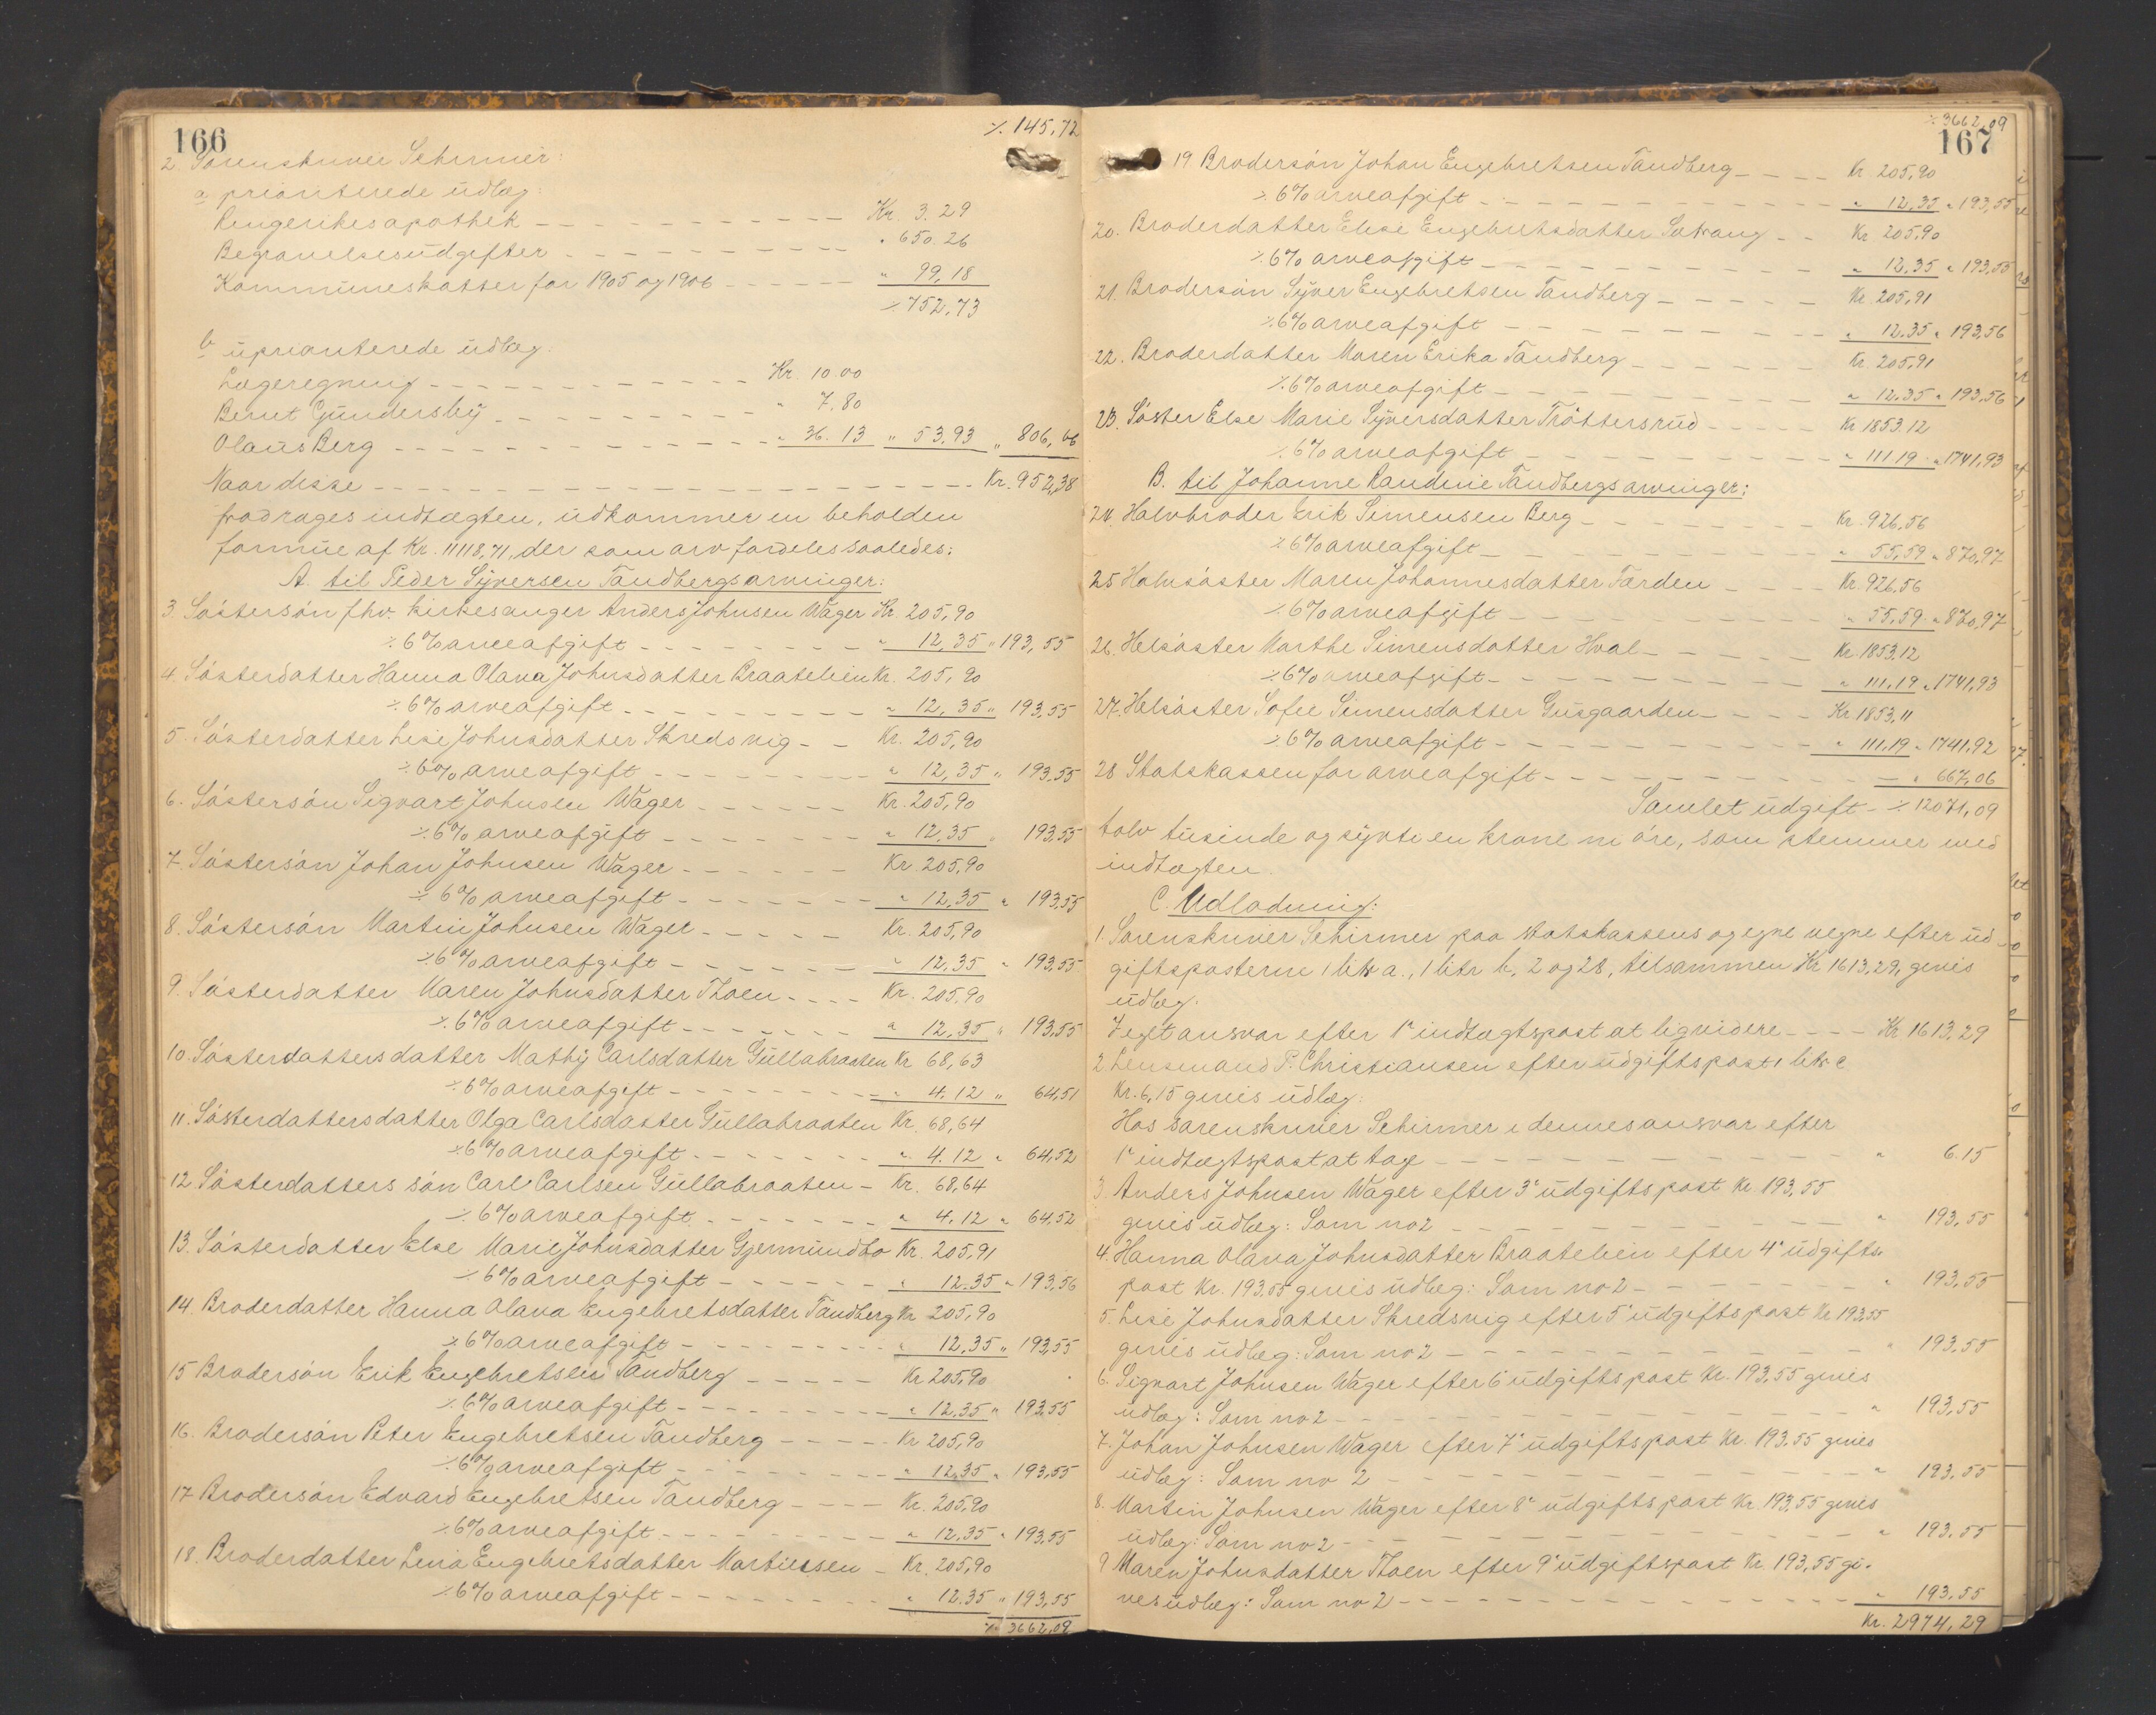 166
٪ 145,72
2. Sorenskriver Schirmer:
a prioriterede udlæg:
Ringerikes apothek - - - Kr. 3.29
Begravelsesudgifter - - - " 650.26
Kommuneskatter for 1905 og 1906 - - - " 99,18
٪ 752,73
b uprioriterede udlæg:
Lægeregning - - - Kr. 10.00
Bernt Gundersby - - - " 7,80
Olaus Berg - - - " 36.13 " 53,93 " 806,66
Naar disse - - - Kr. 952,38
fradrages indtægten, udkommer en beholden
formue af Kr. 11118,71, der som arv fordeles saaledes:
A. til Peder Syversen Tandbergs arvinger:
3. Søstersøn fhv. kirkesanger Anders Johnsen Wager Kr. 205,90
٪ 6% arveafgift - - - " 12,35 " 193,55
4. Søsterdatter Hanna Olava Johnsdatter Braatelien Kr. 205,90
٪ 6% arveafgift - - - " 12,35 " 193,55
5. Søsterdatter Lise Johnsdatter Skredsvig - - Kr. 205,90
٪ 6% arveafgift - - - " 12,35 " 193,55
6. Søstersøn Sigvart Johnsen Wager - - - Kr. 205,90
٪ 6% arveafgift - - - " 12,35 " 193,55
7. Søstersøn Johan Johnsen Wager - - - Kr 205,90
٪ 6% arveafgift - - - " 12,35 " 193,55
8. Søstersøn Martin Johnsen Wager - - - Kr. 205,90
٪ 6% arveafgift - - - " 12,35 " 193,55
9. Søsterdatter Maren Johnsdatter Thoen - - - Kr. 205,90
٪ 6% arveafgift - - - " 12,35 " 193,55
10. Søsterdattersdatter Mathy Carlsdatter Gullabraaten Kr 68,63
٪ 6% arveafgift - - - " 4,12 " 64,51
11. Søsterdattersdatter Olga Carlsdatter Gullabraaten Kr. 68,64
٪ 6% arveafgift - - - " 4.12 " 64,52
12 Søsterdatters søn Carl Carlsen Gullabraaten - Kr. 68,64
٪ 6% arveafgift - - - " 4,12 " 64,52
13. Søsterdatter Else Marie Johnsdatter Gjermundbo Kr. 205,91
٪ 6% arveafgift - - - " 12.35 " 193,56
14. Broderdatter Hanna Olava Engebretsdatter Tandberg Kr 205,90
٪ 6% arveafgift - - - " 12,35 " 193,55
15 Brodersøn Erik Engebretsen Tandberg - - - Kr 205,90
٪ 6% arveafgift - - - " 12,35 " 193,55
16. Brodersøn Peter Engebretsen Tandberg - - - Kr 205,90
٪ 6% arveafgift - - - " 12,35 " 193,55
17 Brodersøn Edvard Engebretsen Tandberg - - - Kr. 205,90
٪ 6% arveafgift - - - " 12,35 " 193,55
18. Broderdatter Lina Engebretsdatter Martinssen - Kr. 205,90
٪ 6% arveafgift - - - " 12.35 " 193,55
٪ 3662,09
٪ 3662,09
167
19 Brodersøn Johan Engebretsen Tandberg - - - Kr 205,90
٪ 6% arveafgift - - - " 12,35 " 193,55
20. Broderdatter Else Engebretsdatter - - Kr 205,90
٪ 6% arveafgift - - - " 12,35 " 193,55
21. Brodersøn Syver Engebretsen Tandberg - - - Kr. 205,91
٪ 6% arveafgift - - - " 12.35 " 193,56
22. Broderdatter Maren Erika Tandberg - - - Kr. 205,91
٪ 6% arveafgift - - - " 12.35 " 193,56
23. Søster Else Marie Syversdatter Trøttersrud - - - Kr 1853.12
٪ 6% arveafgift - - - " 111.19 " 1741,93
B. til Johanne Randine Tandbergs arvinger:
24. Halvbroder Erik Simensen Berg - - - Kr. 926,56
٪ 6% arveafgift - - - " 55,59 " 870,97
25 Halvsøster Maren Johannesdatter Færden - - - Kr. 926,56
٪ 6% arveafgift - - - " 55,59 " 870,97
26. Helsøster Marthe Simensdatter Hval - - - Kr. 1853,12
٪ 6% arveafgift - - - " 111.19 " 1741,93
27. Helsøster Sofie Simensdatter Gusgaarden - - - Kr 1853,11
٪ 6% arveafgift - - - " 111,19 " 1741,92
28 Statskassen for arveafgift - - - " 667,06
Samlet udgift - ٪ 12071,09
tolv tusinde og sytti en krone ni øre, som stemmer med
indtægten.
C. Udlodning:
1. Sorenskriver Schirmer paa statskassens og egne vegne efter ud-
giftsposterne 1 litr a., 1 litr b, 2 og 28, tilsammen Kr 1613,29, gives
udlæg:
I eget ansvar efter 1' indtægtspost at liqvidere - - - Kr 1613,29
2 Lensmand P. Christiansen efter udgiftspost 1 litr c
Kr. 6,15 gives udlæg:
Hos sorenskriver Schirmer i dennes ansvar efter
1' indtægtspost at tage - - - " 6.15
3. Anders Johnsen Wager efter 3' udgiftspost Kr. 193,55
gives udlæg: Som no 2 - - - " 193,55
4. Hanna Olava Johnsdatter Braatelien efter 4' udgifts-
post Kr. 193.55 gives udlæg: Som no 2 - - - " 193,55
5. Lise Johnsdatter Skredsvig efter 5' udgiftspost Kr 193,55
gives udlæg: Som no 2 - - - " 193,55
6. Sigvart Johnsen Wager efter 6' udgiftspost Kr. 193,55 gives
udlæg: Som no 2 - - - " 193,55
7. Johan Johnsen Wager efter 7' udgiftspost Kr. 193,55 gives
udlæg: Som no 2 - - - " 193,55
8. Martin Johnsen Wager efter 8' udgiftspost Kr 193,55 gives
udlæg: Som no 2 - - - " 193.55
9 Maren Johnsdatter Thoen efter 9' udgiftspost Kr. 193,55 gi-
ves udlæg: Som no 2 - - - " 193.55
Kr. 2974,29